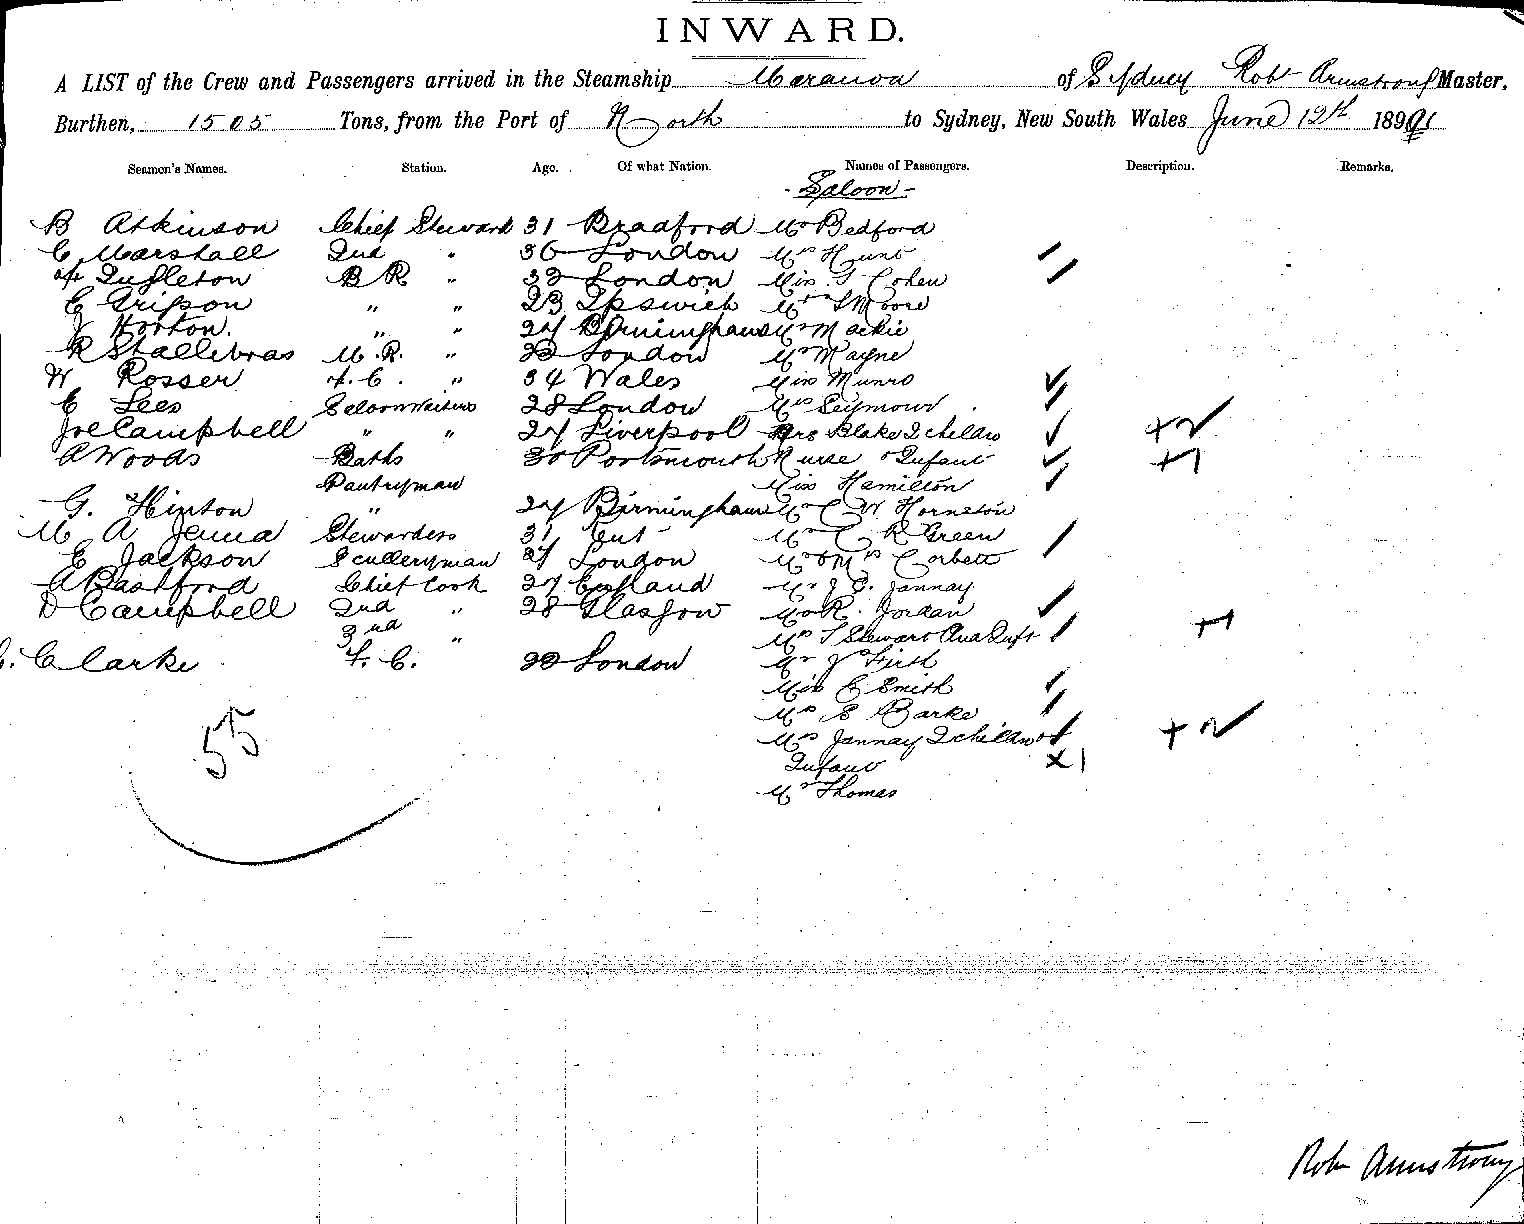 INWARD.
A LIST of the Crew and Passengers arrived in the Steamship Maranoa of Sydney Robt Armstrong Master,
Burthen, 1505 Tons, from the Port of North to Sydney, New South Wales June 12th 1891
Seamen's Names. Station. Age. Of what Nation. Names of Passengers. Description. Remarks.
Saloon
B Atkinson Chief Steward 31 Bradford Mr Bedford
C Marshall 2nd " 36 London Mrs Hunt
Singleton B R " 32 London Miss Cohen
E " " 23 Ipswich Mr Moore
J Horton. " " 24 Birmingham Mr Mackie
R Stallibras M. R. " 22 London Mr Mayne
W Rosser F. C. " 34 Wales Miss Munro
E Lees Saloon Waiters 28 London Mrs Seymour
Joe Campbell " " 27 Liverpool Mrs Blake 2 children +2
A Woods Baths 30 Portsmouth Nurse & Infant +1
Pantryman Miss Hamilton
G. Hinton " 27 Birmingham Mr C W Horneton
M A Stewardess 31 Mr C R Green
E Jackson Scullery man 27 London Mr & Mrs Corbett
A Bastford Chief Cook 27 England Mr J C. Jannay
D Campbell 2nd " 28 Glasgow Mr R. Jordan
3rd " Mrs T Stewart and Inft +1
Clarke F. C. 22 London Mr J Firth
Miss C Smith
Mrs E Barke
55 Mrs Jannay 2 children & +2
Infant x1
Mr Thomas
Robt Armstrong